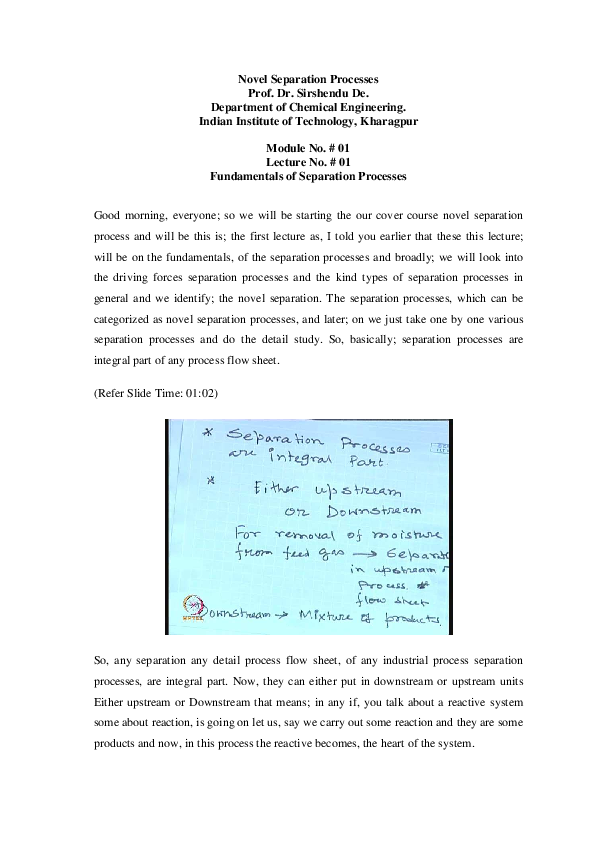 Novel Separation Processes
Prof. Dr. Sirshendu De.
Department of Chemical Engineering.
Indian Institute of Technology, Kharagpur
Module No. # 01
Lecture No. # 01
Fundamentals of Separation Processes
Good morning, everyone; so we will be starting the our cover course novel separation
process and will be this is; the first lecture as, I told you earlier that these this lecture;
will be on the fundamentals, of the separation processes and broadly; we will look into
the driving forces separation processes and the kind types of separation processes in
general and we identify; the novel separation. The separation processes, which can be
categorized as novel separation processes, and later; on we just take one by one various
separation processes and do the detail study. So, basically; separation processes are
integral part of any process flow sheet.
(Refer Slide Time: 01:02)
* Separation Processes
are integral Part.
* Either upstream
or Downstream
For removal of moisture
from feed gas → Separat
in upstream
Process
flow sheet
Downstream → Mixture of products.
So, any separation any detail process flow sheet, of any industrial process separation
processes, are integral part. Now, they can either put in downstream or upstream units
Either upstream or Downstream that means; in any if, you talk about a reactive system
some about reaction, is going on let us, say we carry out some reaction and they are some
products and now, in this process the reactive becomes, the heart of the system.